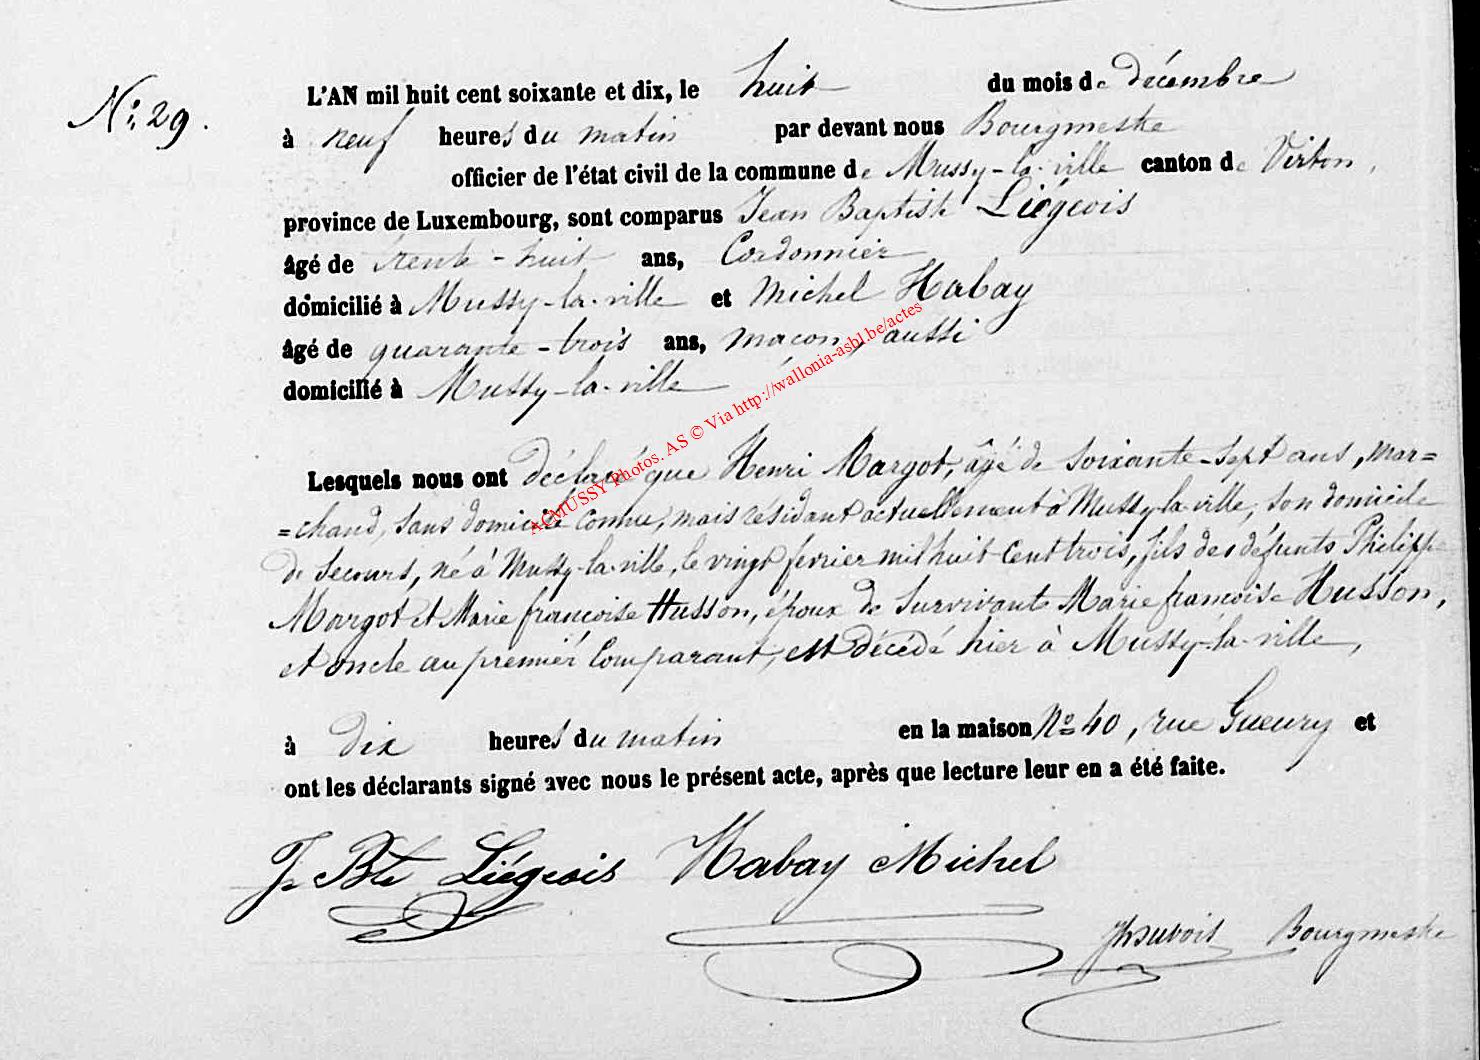 N.º 29.
L'AN mil huit cent soixante et dix, le huit du mois de décembre
à neuf heures du matin par devant nous Bourgmestre
officier de l'état civil de la commune de Mussy-la-ville canton de Virton,
province de Luxembourg, sont comparus Jean Baptiste Liégeois
âgé de trente-huit ans, Cordonnier
domicilié à Mussy-la-ville et Michel Habay
âgé de quarante-trois ans, maçon, aussi
domicilié à Mussy-la-ville
Lesquels nous ont déclaré que Henri Margot, âgé de soixante-sept ans, mar=
=chand, sans domicile connu, mais résidant actuellement à Mussy-la-ville, son domicile
de secours, né à Mussy-la-ville, le vingt fevrier mil huit cent trois, fils des défunts Philippe
Margot et Marie françoise Husson, époux de survivante Marie françoise Husson,
et oncle au premier Comparant, est décédé hier à Mussy-la-ville,
à dix heures du matin en la maison Nº 40, rue Gueury et
ont les déclarants signé avec nous le présent acte, après que lecture leur en a été faite.
J. Bte Liégeois Habay Michel
Dubois Bourgmestre
ACMUSSY Photos. AS © Via http://wallonia-asbl.be/actes